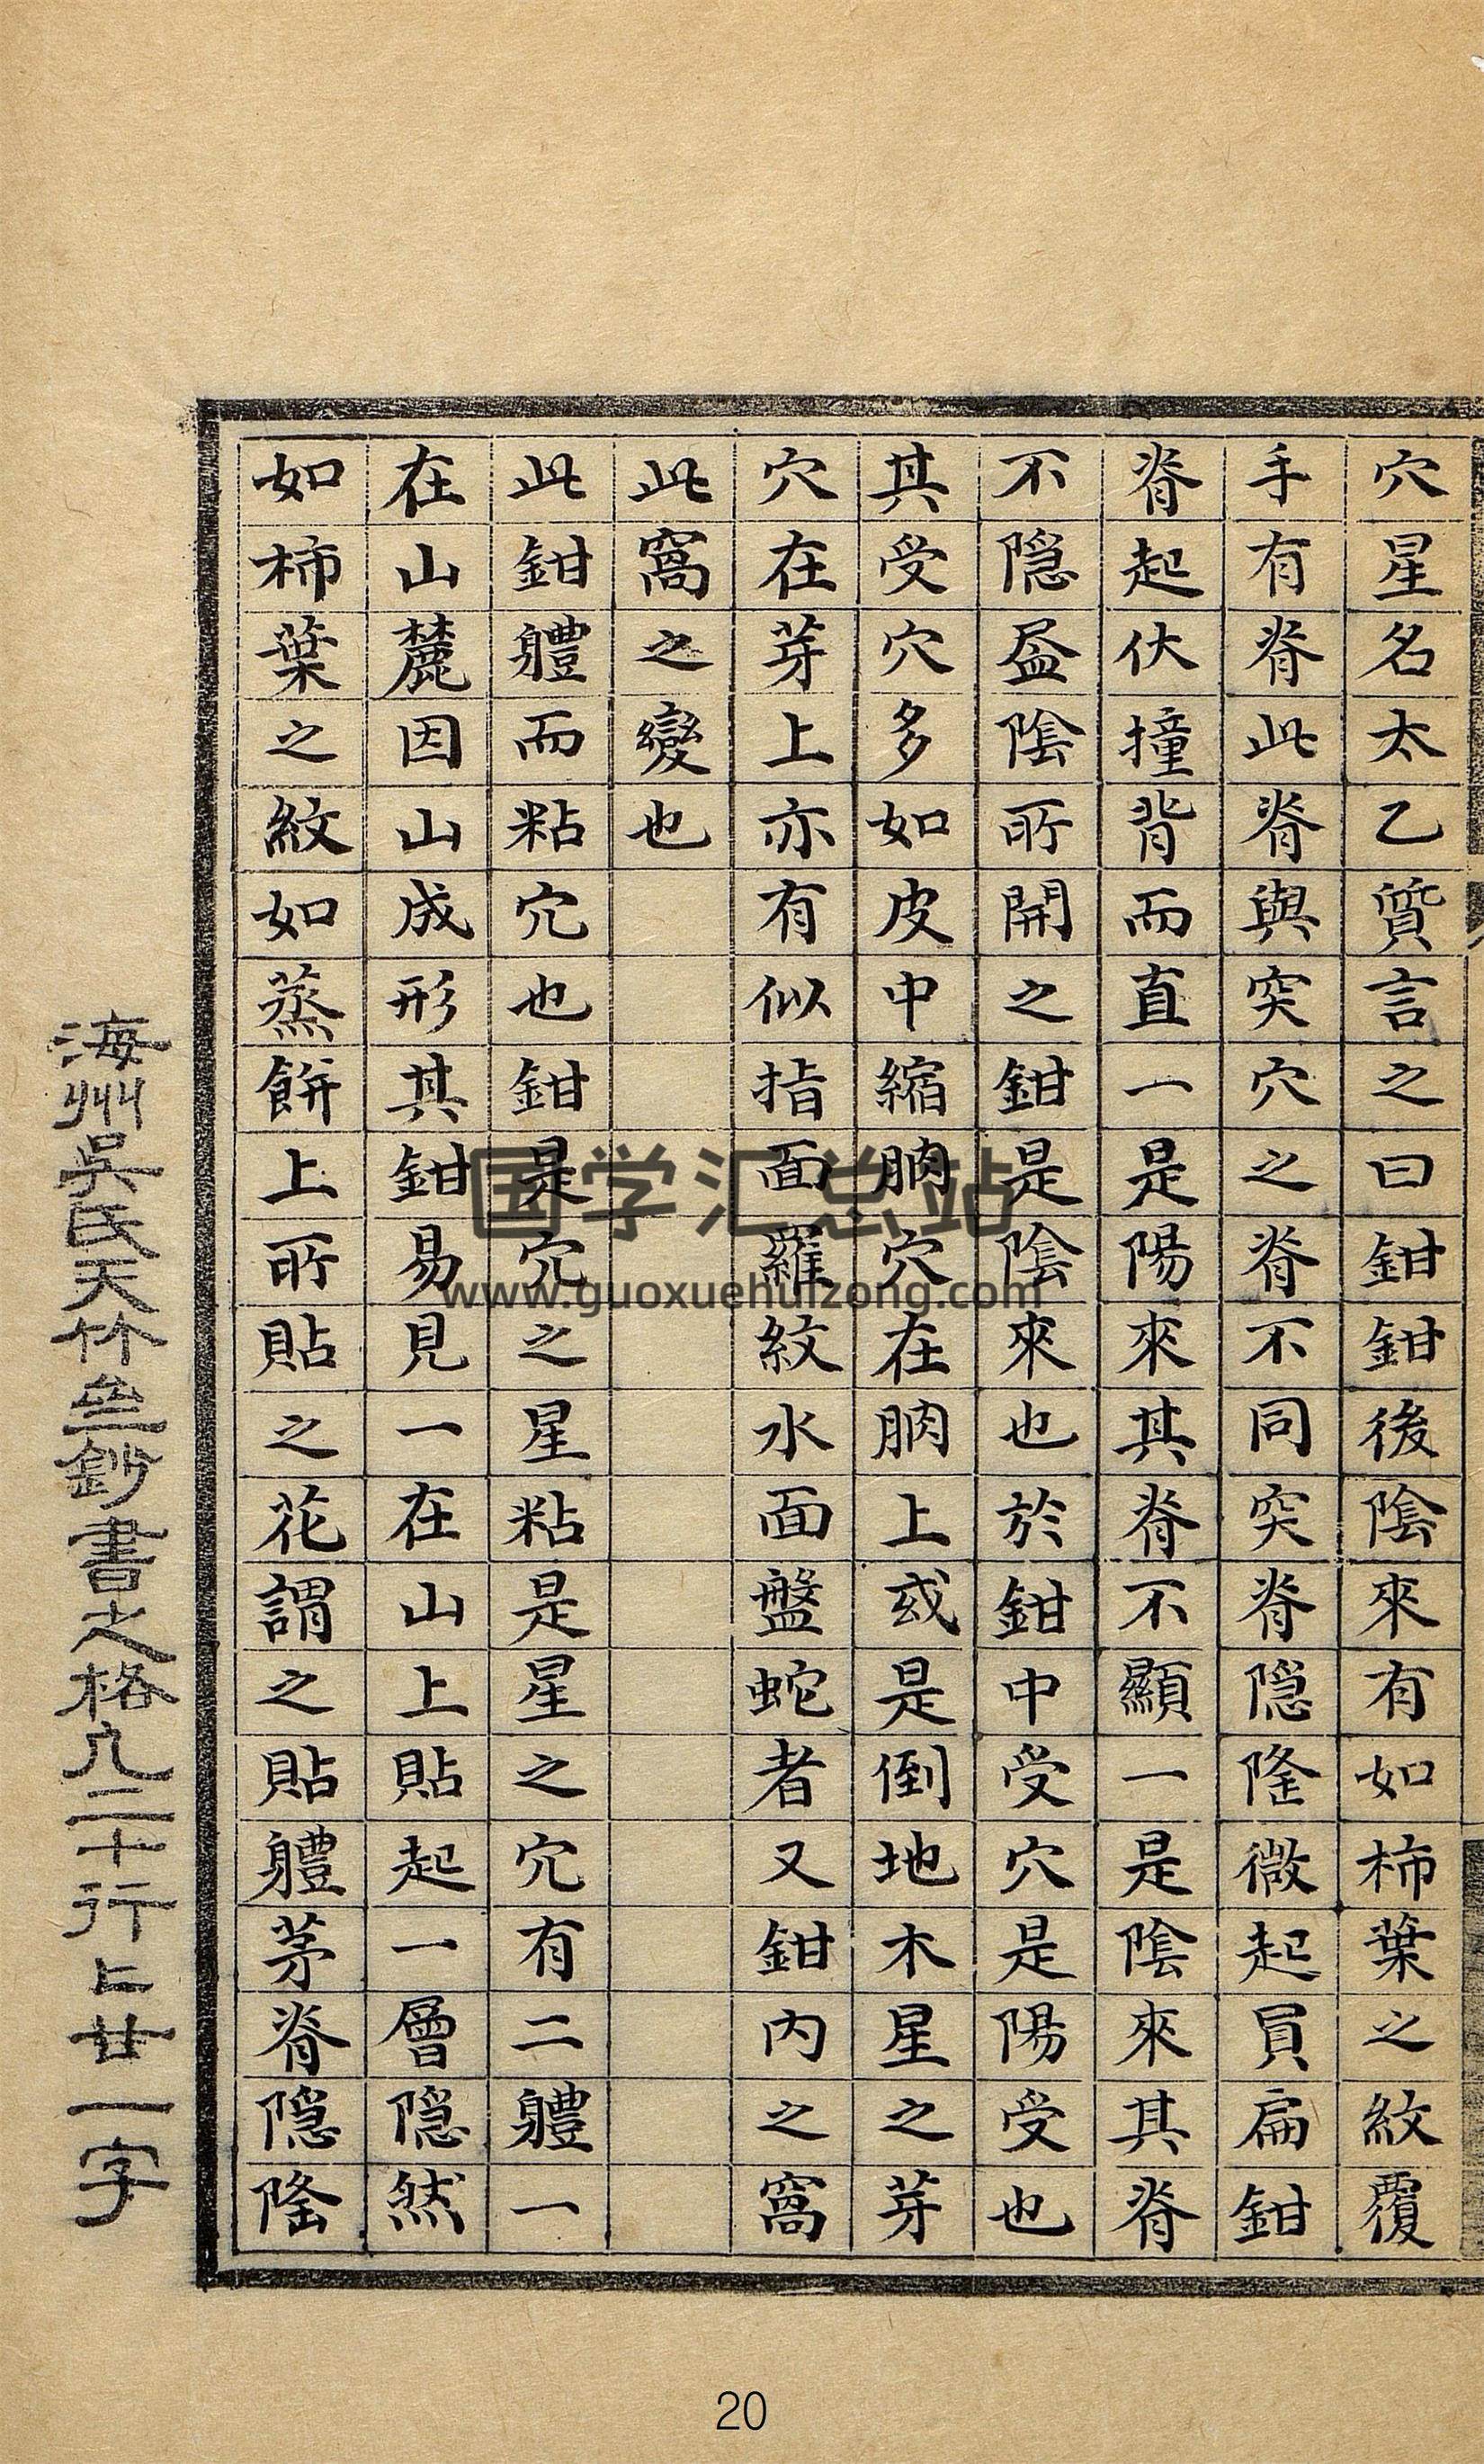 穴星名太乙質言之曰鉗鉗後陰來有如柿葉之紋覆
手有脊此脊與突穴之脊不同突脊隠隆微起員扁鉗
脊起伏撞背而直一是陽來其脊不顯一是陰來其脊
不隠盈陰所開之鉗是陰來也於鉗中受穴是陽受也
其受穴多如皮中縮腩穴在腩上或是倒地木星之芽
穴在芽上亦有似指面羅紋水面盤蛇者又鉗內之窩
此窩之變也
此鉗軆而粘穴也鉗是穴之星粘是星之穴有二軆一
在山麓因山成形其鉗易見一在山上貼起一層隠然
如柿葉之紋如蒸餅上所貼之花謂之貼軆茅脊隠隆
海州吳氏天竹亝鈔書之格凡二十行上廿一字
国学汇总站
www.guoxuehuizong.com
20